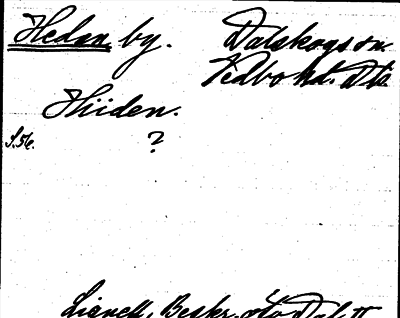 Hedan by. Dalskogs sn.
Vedbo hd. Dls
Hiiden.
S. 56. ?
Lignell, Beskr. öfv. Dal II